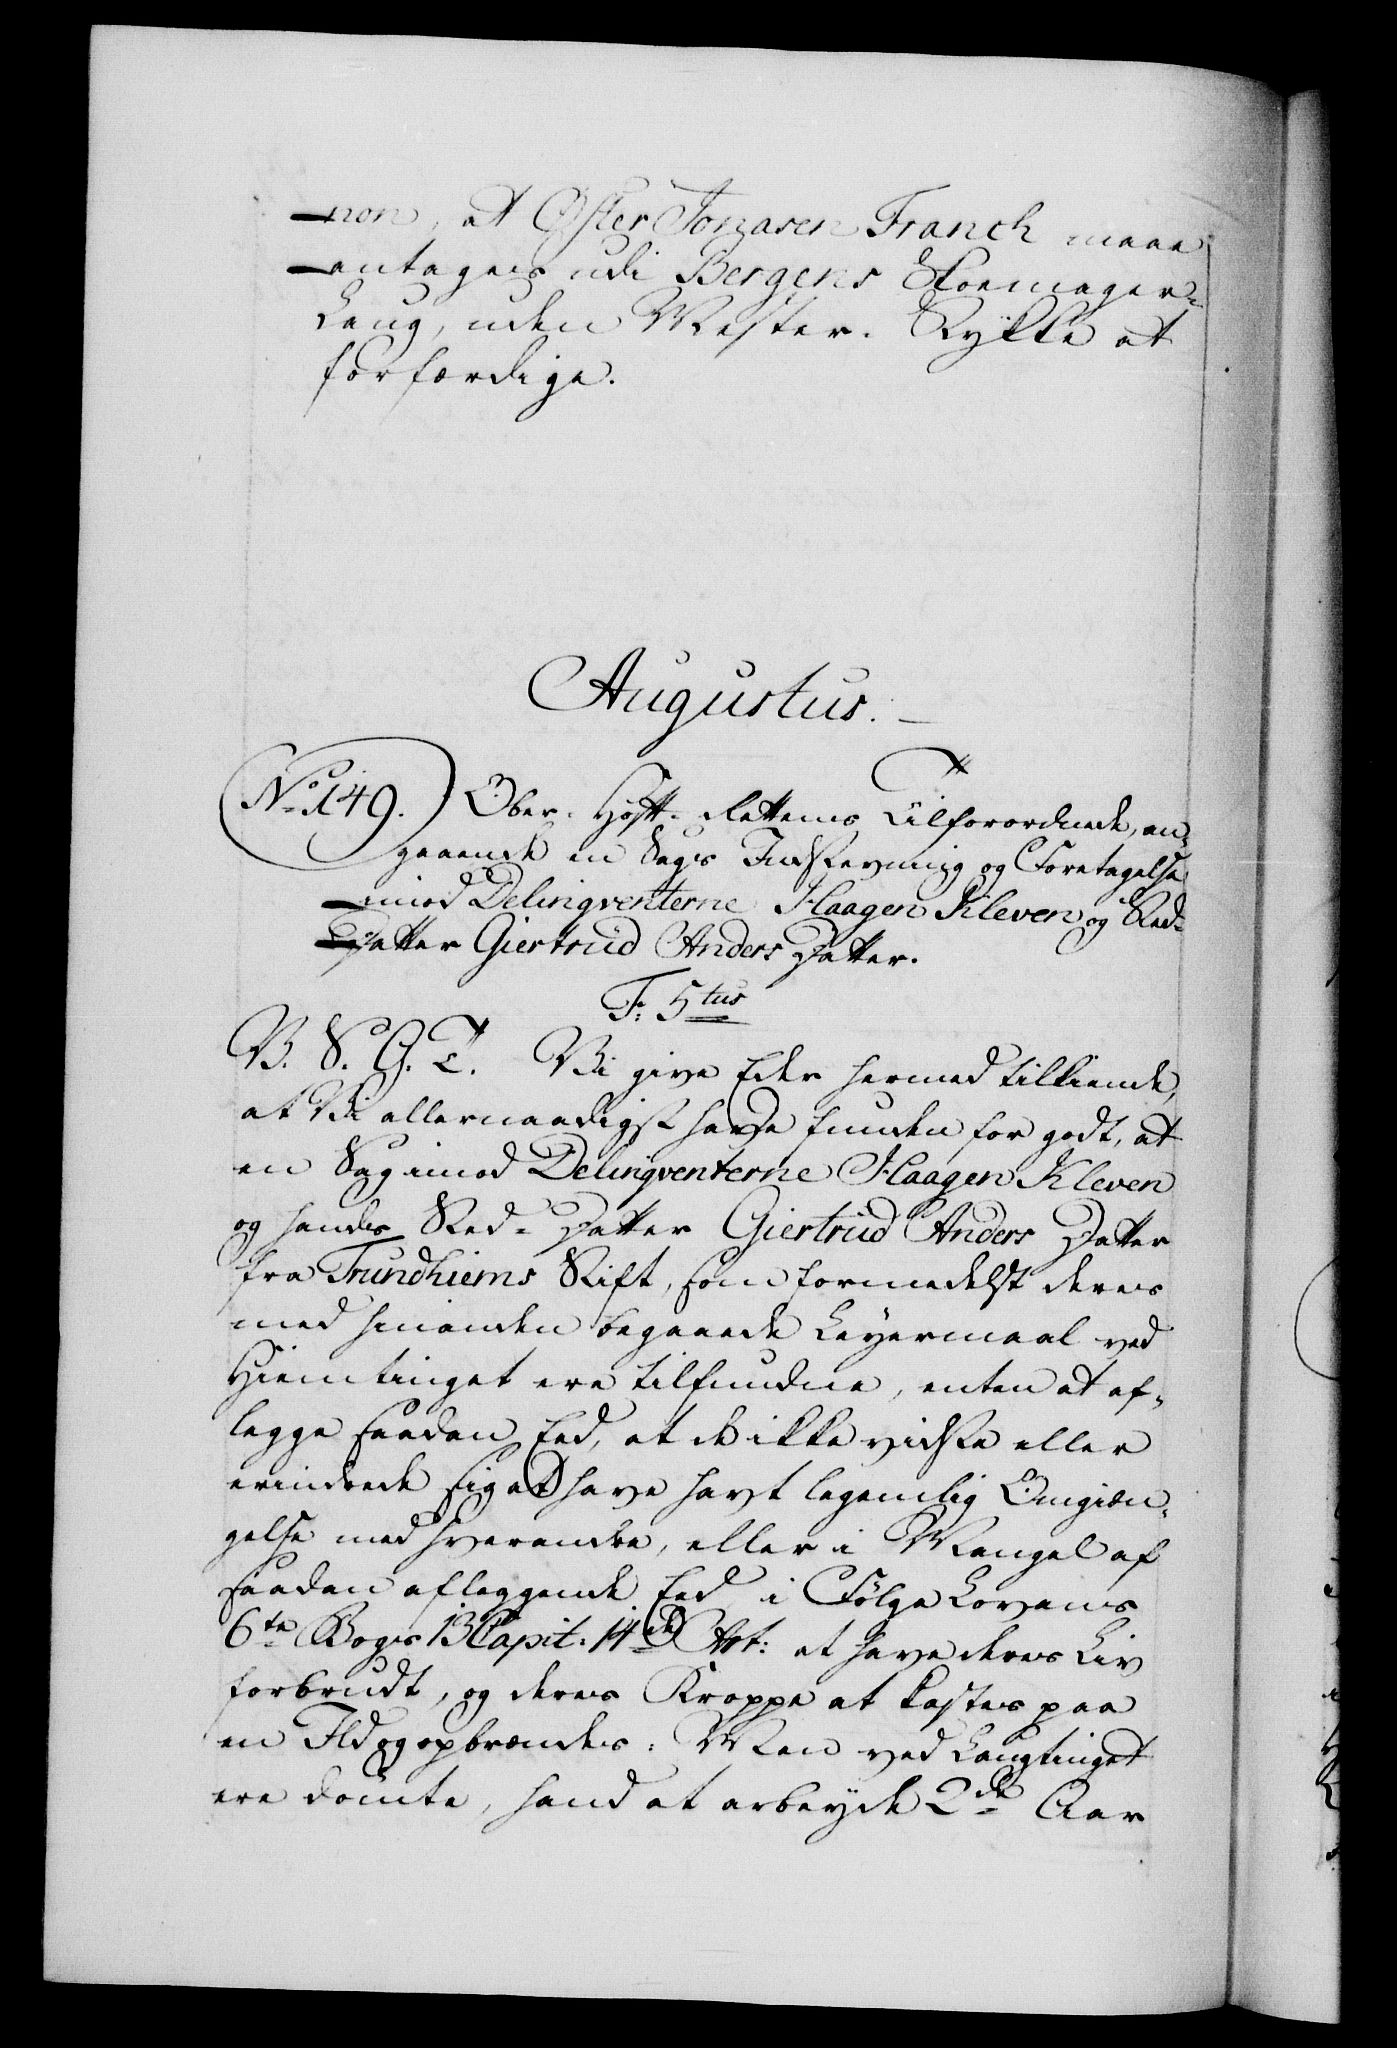 non, at Øster Jonasen Franck maae
antages udi Bergens Skoemager-
Laug, uden Mester-Stykke at
forfærdige.
Augustus.
No 149. Ober-Hoff-Rettens Tilforordnede, an-
gaaende en Sags Indstevning og Foretagelse
imod Delinqventerne Haagen Kleven og Sted-
Datter Giertrud Anders Datter.
F: 5tus
V. S. G. T. Vi give Eder hermed tilkiende,
at Vi allernaadigst have funden for godt, at
en Sag imod Delinqventerne Haagen Kleven
og hands Sted-Datter Giertrud Anders Datter
fra Trundhiems Stift, som formedelst deres
med hinanden begaaede Leyermaal ved
Hiemtinget ere tilfundne, enten at af-
legge saadan Eed, at de ikke vidste eller
erindrede sig at have havt legemlig Omgiæn-
gelse med hverandre, eller i Mangel af
saadan afleggende Eed i Følge Lovens
6te Bogs 13 Capit: 14de Art: at have deres Liv
forbrudt, og deres Kroppe at kastes paa
en Ild og opbrændes: Men ved Laugtinget
ere dömte, hand at arbeyde 2de Aar